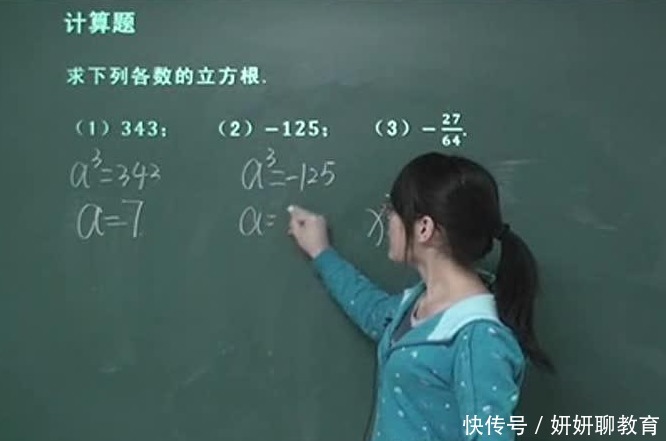 计算题
求下列各数的立方根.
(1) 343; (2) -125; (3) -27/64.
a³=343 a³=-125 x
a=7 a=
快传号 / 妍妍聊教育